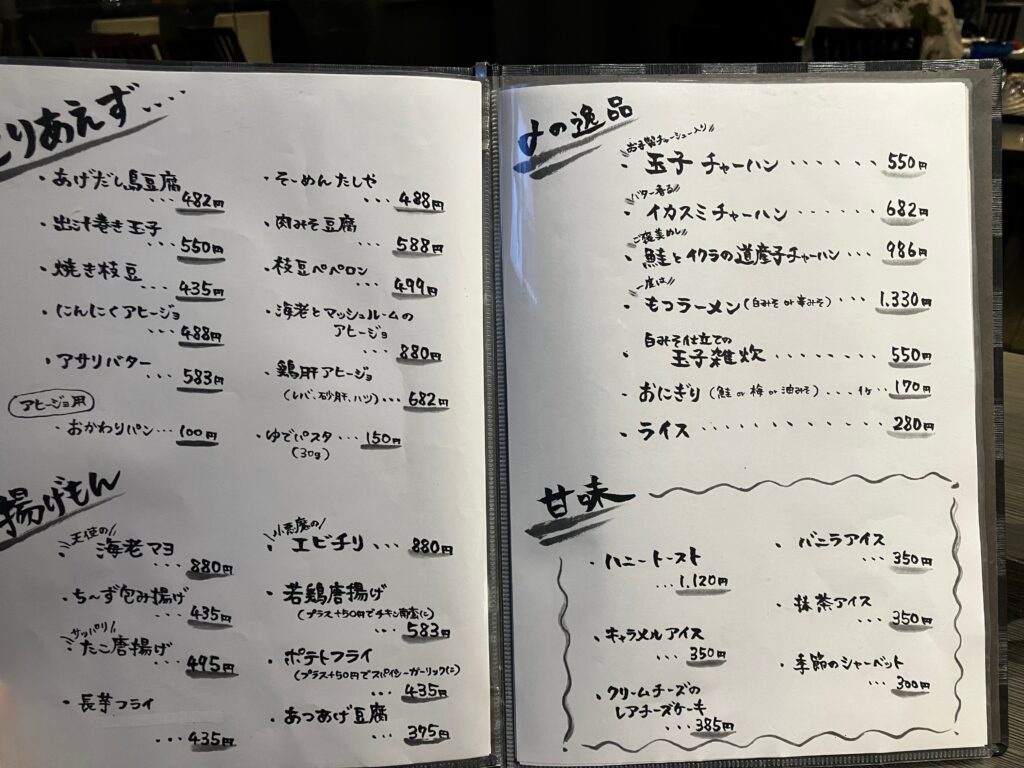 とりあえず....
・あげだし島豆腐
...482円
・出汁巻き玉子
...550円
・焼き枝豆
...435円
・にんにくアヒージョ
...488円
・アサリバター
...583円
アヒージョ用
・おかわりパン...100円
・そーめんたしや
...488円
・肉みそ豆腐
...588円
・枝豆ペペロン
...499円
・海老とマッシュルームの
アヒージョ
...880円
・鶏肝アヒージョ
(レバ、砂肝、ハツ)...682円
・ゆでパスタ...150円
(30g)
揚げもん
天使の
・海老マヨ
...880円
・ち~ず包み揚げ
...435円
サッパリ
・たこ唐揚げ
...495円
・長芋フライ
...435円
小悪魔の
・エビチリ...880円
・若鶏唐揚げ
(プラス+50円でチキン南蛮に)
...583円
・ポテトフライ
(プラス+50円でスパイシーガーリックに)
...435円
・あつあげ豆腐
...375円
の逸品
お手製チャーシュー入り
・玉子チャーハン......550円
バター香る
・イカスミチャーハン......682円
ご褒美めし
・鮭とイクラの道産子チャーハン...986円
一度は
・もつラーメン(白みそor辛みそ)...1.330円
白みそ仕立ての
・玉子雑炊........550円
・おにぎり(鮭or梅or油みそ)...1ケ..170円
・ライス...........280円
甘味
・ハニートースト
...1.120円
・キャラメルアイス
...350円
・クリームチーズの
レアチーズケーキ
...385円
・バニラアイス
...350円
・抹茶アイス
...350円
・季節のシャーベット
...300円